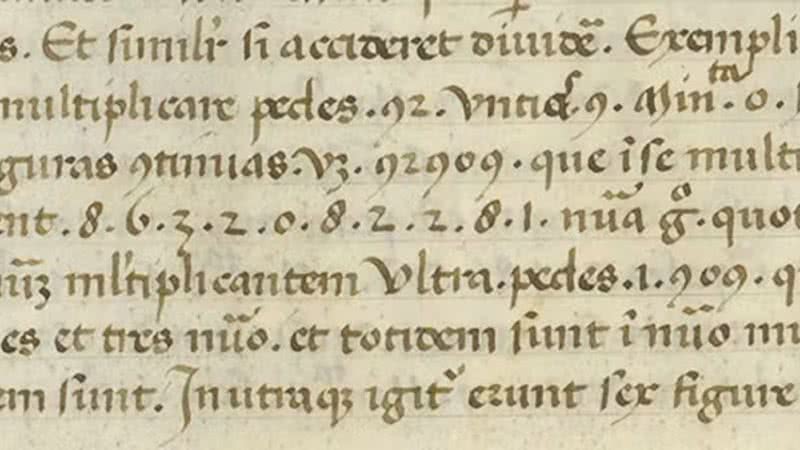 s. Et simili᷑ si accideret diuidẽ. Exempli
multiplicare pedes .92. Vntias .9. Min.ta .0.
guras ꝯtinuas. Vꝫ. 92909. que ĩ se multi
ent. 8. 6. 3. 2. 0. 8. 2. 2. 8. 1. nũa g̊. quot
nũꝫ ml'tiplicantem Vltra. pedes .1. 909. q
es et tres nũo. et totidem sunt ĩ nũo mu
em sunt. In utraqꝫ igit᷑ erunt sex figure